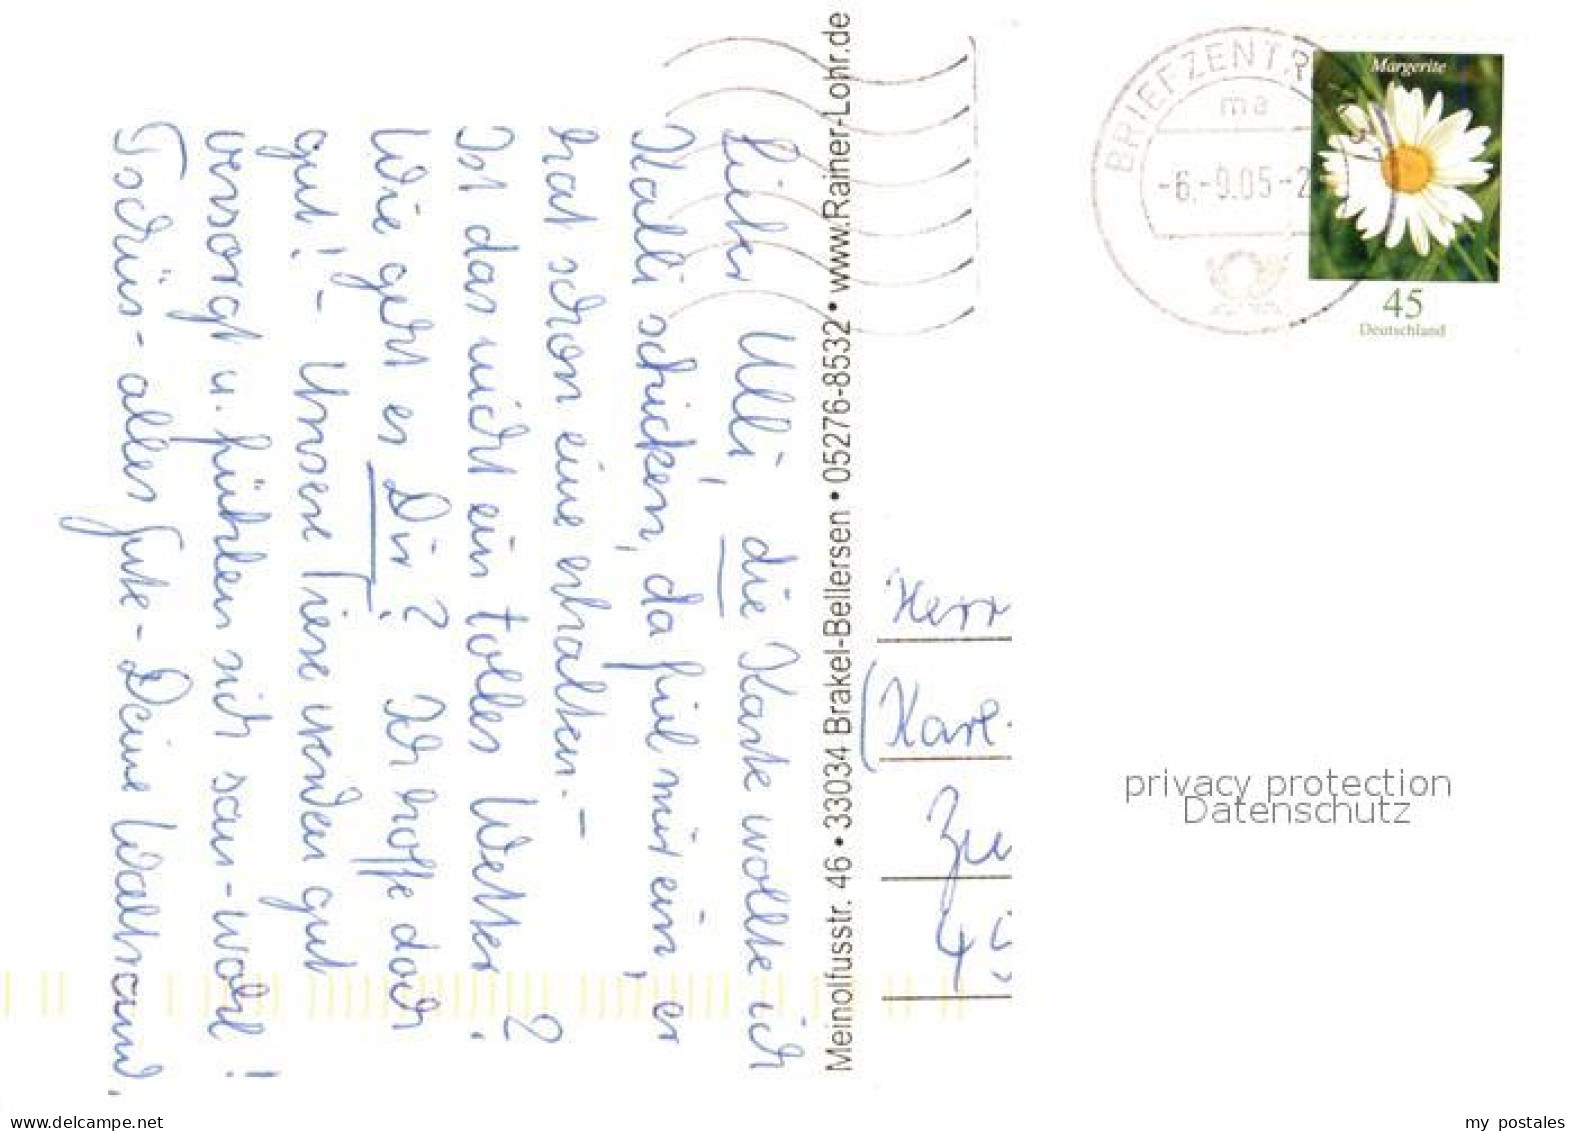 Lieber Ulli, die Karte wollte ich
Kalli schicken, da fiel mir ein, er
hat schon eine erhalten. –
Ist das nicht ein tolles Wetter?
Wie geht es Dir? Ich hoffe doch
gut! – Unsere Tiere werden gut
versorgt u. fühlen sich sau-wohl!
Tschüs - alles Gute - Deine Waltraud.
Meinolfusstr. 46 • 33034 Brakel-Bellersen • 05276-8532 • www.Rainer-Lohr.de
BRIEFZENTR
ma
-6.-9.05-2
Margerite
45
Deutschland
Herr
(Karl-
privacy protection
Datenschutz
www.delcampe.net
my_postales